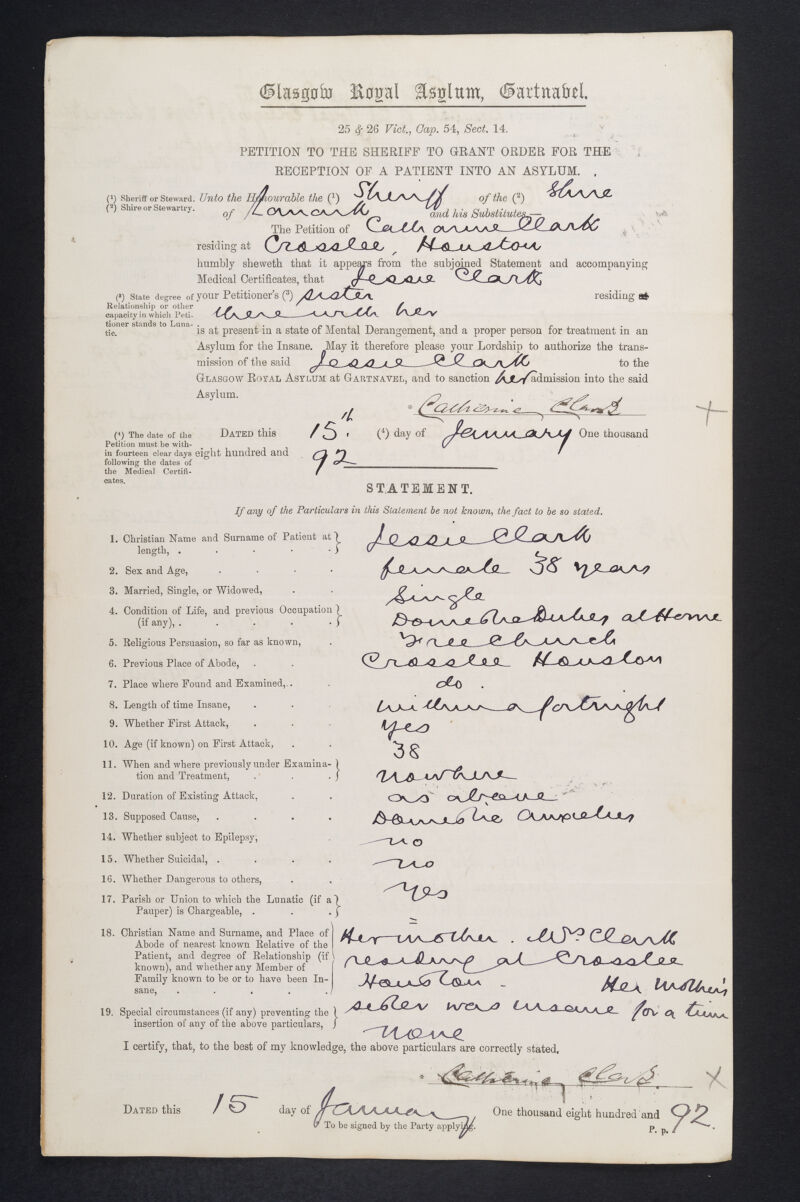 Glasgow Royal Asylum, Gartnavel.
25 & 26 Vict., Cap. 54, Sect. 14.
PETITION TO THE SHERIFF TO GRANT ORDER FOR THE
RECEPTION OF A PATIENT INTO AN ASYLUM.
(1) Sheriff or Steward.
(2) Shire or Stewartry.
Unto the Honourable the (1) Sheriff of the (2) Shire
of Lanark and his Substitutes,—
The Petition of Catharine Clark
residing at Crosslee, Houston
humbly sheweth that it appears from the subjoined Statement and accompanying
Medical Certificates, that Jessie Clark
(3) State degree of
Relationship or other
capacity in which Peti-
tioner stands to Luna-
tic.
your Petitioner's (3) sister residing at
there with her
is at present in a state of Mental Derangement, and a proper person for treatment in an
Asylum for the Insane. May it therefore please your Lordship to authorize the trans-
mission of the said Jessie Clark to the
GLASGOW ROYAL ASYLUM at GARTNAVEL, and to sanction her admission into the said
Asylum.
Catherine Clark
(4) The date of the
Petition must be with-
in fourteen clear days
following the dates of
the Medical Certifi-
cates.
DATED this 15th (4) day of January One thousand
eight hundred and 92
STATEMENT.
If any of the Particulars in this Statement be not known, the fact to be so stated.
1. Christian Name and Surname of Patient at
length, . Jessie Clark
2. Sex and Age, female 38 years
3. Married, Single, or Widowed, Single
4. Condition of Life, and previous Occupation
(if any), . Domestic Duties at Home
5. Religious Persuasion, so far as known, Free Church
6. Previous Place of Abode, Crosslee Houston
7. Place where Found and Examined, do.
8. Length of time Insane, within a fortnight
9. Whether First Attack, yes
10. Age (if known) on First Attack, 38
11. When and where previously under Examina-
tion and Treatment, nowhere
12. Duration of Existing Attack, as above
13. Supposed Cause, Domestic anxieties
14. Whether subject to Epilepsy, no
15. Whether Suicidal, no
16. Whether Dangerous to others, yes
17. Parish or Union to which the Lunatic (if a
Pauper) is Chargeable, =
18. Christian Name and Surname, and Place of
Abode of nearest known Relative of the
Patient, and degree of Relationship (if
known), and whether any Member of
Family known to be or to have been In-
sane,
Her mother. Mrs Clark
residing at Crosslee
Houston. Her Mother's
sister was insane for a time
19. Special circumstances (if any) preventing the
insertion of any of the above particulars, none
I certify, that, to the best of my knowledge, the above particulars are correctly stated.
Catherine Clark
DATED this 15 day of January One thousand eight hundred and 92.
To be signed by the Party applying.
P. p.